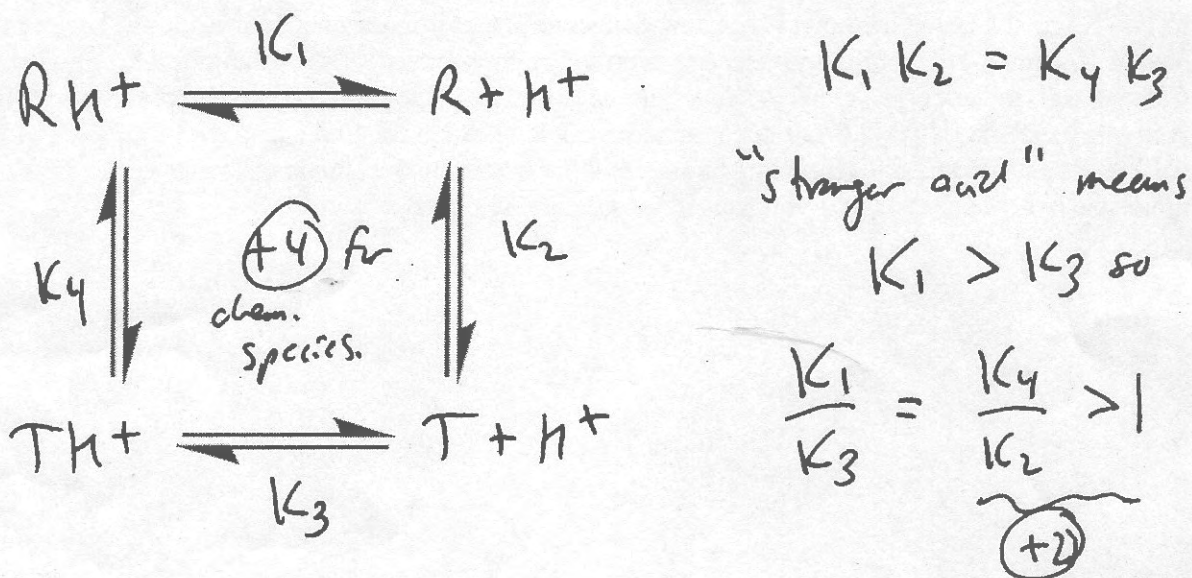 K₁
RH⁺ ⇌ R + H⁺
K₄
+4 for
chem.
species.
K₂
TH⁺ ⇌ T + H⁺
K₃
K₁ K₂ = K₄ K₃
"stronger acid" means
K₁ > K₃ so
K₁/K₃ = K₄/K₂ > 1
+2